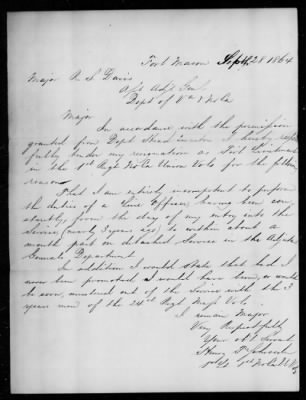 Fort Macon Sept. 28 1864
Major R. S. Davis
Asst Adjt Genl
Dept of Va & N Ca
Major
In accordance with the permission
granted from Dept Head I hereby respect
fully tender my resignation as First Lieutenant
in the 1st Regt No Ca Union Vols for the following
reasons
That I am entirely incompetent to perform
the duties of a Line Officer, having been con
stantly, from the day of my entry into the
Service, (nearly 3 years ago) to within about a
month past on detached Service in the
Department
In addition I would state that had I
now been promoted I would have been, or would
be soon, mustered out of the Service with the 3
years men of the 24th Regt Mass Vols
I remain Major
Very Respectfully
Your obt Servant
Henry
1st Lt 1st No Ca